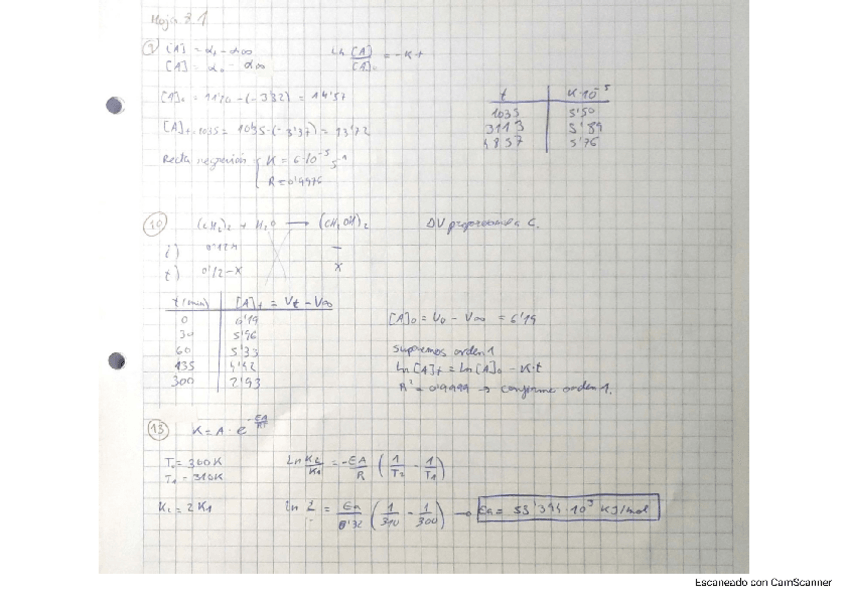 Hoja 3.1
[A] = α₀ - α∞
[A] = α₀ - α∞
Ln [A]/[A]₀ = -K t
[A]₀ = 11'20 - (-3'32) = 14'57
[A]t=1035 = 10'35 - (-3'37) = 13'72
Recta regresión { K = 6·10⁻⁵ s⁻¹
R = 0'9976
t | K·10⁻⁵
1035 | 5'50
3113 | 5'89
4857 | 5'76
10 (CH₂)₂ + H₂O ⟶ (CH₂OH)₂
ΔV proporcional a C.
i) 0'12M —
t) 0'12-x x
t (min) | [A]t = Vt - V∞
0 | 6'19
30 | 5'96
60 | 5'33
135 | 4'42
300 | 2'93
[A]₀ = V₀ - V∞ = 6'19
suponemos orden 1
Ln [A]t = Ln [A]₀ - K·t
R² = 0'9999 → confirma orden 1.
13 K = A · e^(-EA/RT)
T₂ = 300K
T₁ = 310K
Ln K₂/K₁ = -EA/R (1/T₂ - 1/T₁)
K₂ = 2K₁
ln 2 = Ea/8'32 (1/310 - 1/300) → Ea = 53'594·10³ KJ/mol
Escaneado con CamScanner